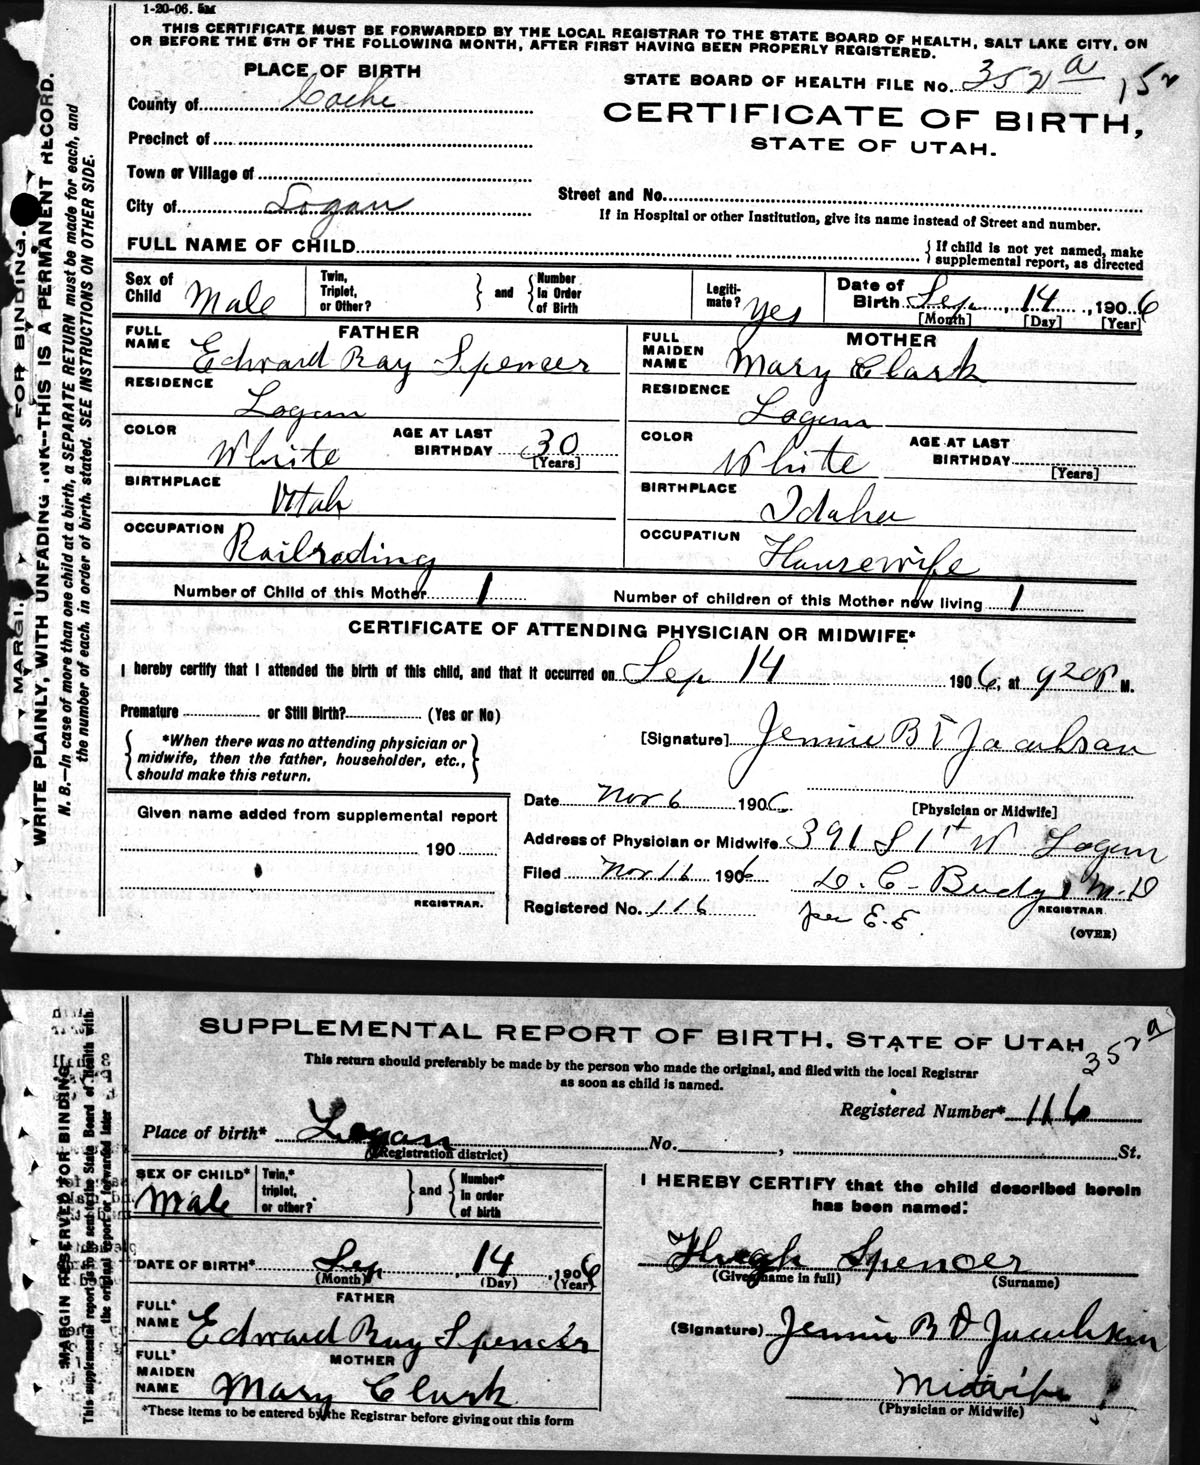 1-20-06. 5M
THIS CERTIFICATE MUST BE FORWARDED BY THE LOCAL REGISTRAR TO THE STATE BOARD OF HEALTH, SALT LAKE CITY, ON
OR BEFORE THE 5TH OF THE FOLLOWING MONTH, AFTER FIRST HAVING BEEN PROPERLY REGISTERED.
PLACE OF BIRTH
STATE BOARD OF HEALTH FILE No. 352 a 152
County of Cache
CERTIFICATE OF BIRTH,
STATE OF UTAH.
Precinct of
Town or Village of
Street and No.
City of Logan
If in Hospital or other Institution, give its name instead of Street and number.
FULL NAME OF CHILD
{ If child is not yet named, make
supplemental report, as directed
Sex of Child Male
Twin, Triplet, or Other? } and { Number in Order of Birth
Legiti-mate? yes
Date of Birth Sep. 14, 1906
[Month] [Day] [Year]
FATHER
FULL NAME Edward Ray Spencer
RESIDENCE Logan
COLOR White AGE AT LAST BIRTHDAY 30
[Years]
BIRTHPLACE Utah
OCCUPATION Railroading
MOTHER
FULL MAIDEN NAME Mary Clark
RESIDENCE Logan
COLOR White AGE AT LAST BIRTHDAY
[Years]
BIRTHPLACE Idaho
OCCUPATION Housewife
Number of Child of this Mother 1 Number of children of this Mother now living 1
CERTIFICATE OF ATTENDING PHYSICIAN OR MIDWIFE*
I hereby certify that I attended the birth of this child, and that it occurred on Sep 14 1906, at 920 P M.
Premature or Still Birth? (Yes or No)
{ *When there was no attending physician or
midwife, then the father, householder, etc.,
should make this return. }
[Signature] Jennie B Jacobson
Date Nov 6 1906
[Physician or Midwife]
Given name added from supplemental report
190
REGISTRAR.
Address of Physician or Midwife 391 S 1st W Logan
Filed Nov 16 1906 D. C. Budge M.D
REGISTRAR
Registered No. 116 per E.E.
(OVER)
MARGI FOR BINDING.
WRITE PLAINLY, WITH UNFADING INK--THIS IS A PERMANENT RECORD.
N. B.—In case of more than one child at a birth, a SEPARATE RETURN must be made for each, and
the number of each, in order of birth, stated. SEE INSTRUCTIONS ON OTHER SIDE.
SUPPLEMENTAL REPORT OF BIRTH, STATE OF UTAH
352 a
This return should preferably be made by the person who made the original, and filed with the local Registrar
as soon as child is named.
Registered Number* 116
Place of birth* Logan No. , St.
(Registration district)
SEX OF CHILD* Male
Twin,* triplet, or other? } and { Number* in order of birth
DATE OF BIRTH* Sep, 14, 1906
(Month) (Day) (Year)
FATHER
FULL* NAME Edward Ray Spencer
MOTHER
FULL* MAIDEN NAME Mary Clark
*These items to be entered by the Registrar before giving out this form
I HEREBY CERTIFY that the child described herein
has been named:
Hugh Spencer
(Given name in full) (Surname)
(Signature) Jennie B D Jacobson
Midwife
(Physician or Midwife)
MARGIN RESERVED FOR BINDING
This supplemental report is to be sent to the State Board of Health with
the original report or forwarded later